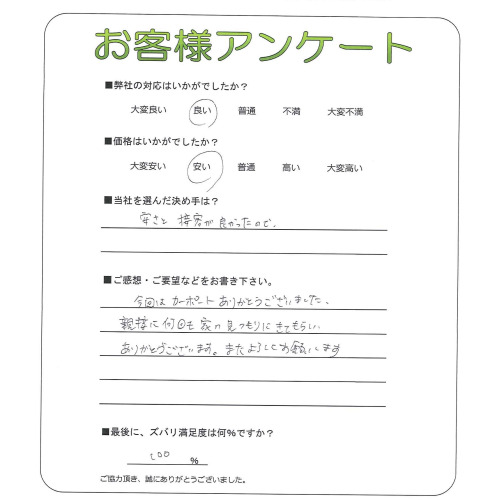 お客様アンケート
■弊社の対応はいかがでしたか？
大変良い 良い 普通 不満 大変不満
■価格はいかがでしたか？
大変安い 安い 普通 高い 大変高い
■当社を選んだ決め手は？
安さと 接客が良かったので、
■ご感想・ご要望などをお書き下さい。
今回は カーポート ありがとうございました、
親切に何回も 家の見つもりに きてもらい
ありがとうございます。またよろしくお願いします
■最後に、ズバリ満足度は何%ですか？
100 %
ご協力頂き、誠にありがとうございました。